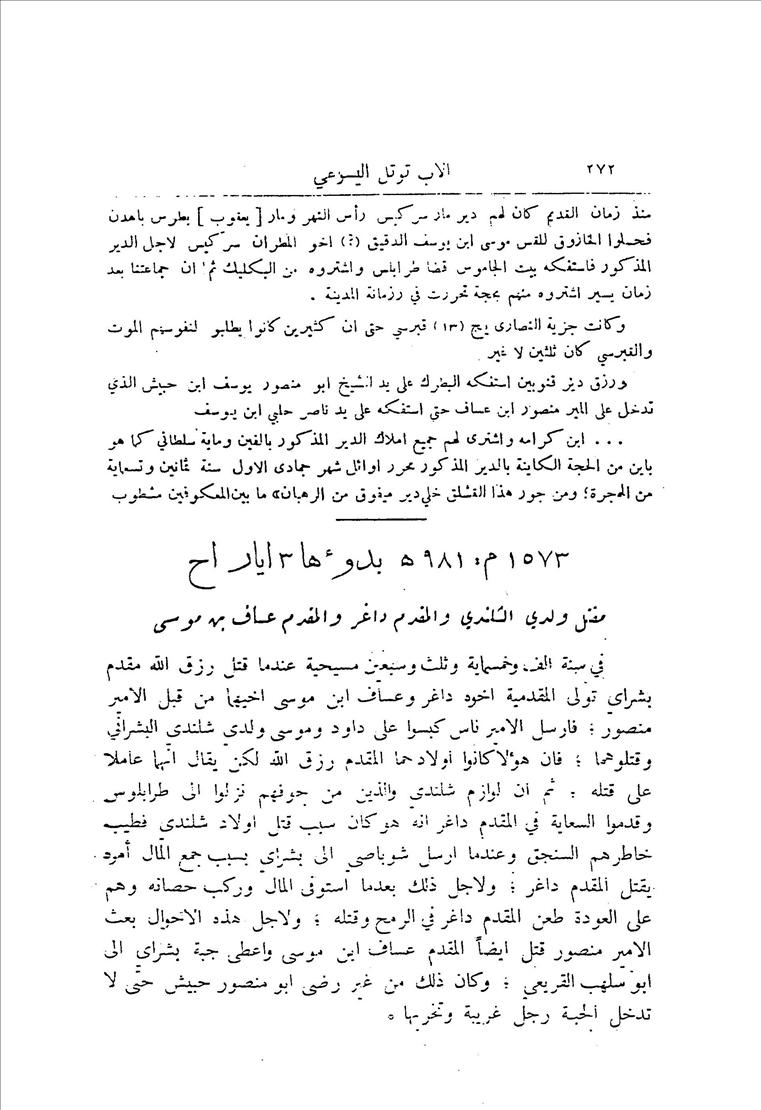 ٢٧٢
الاب توتل اليسوعي
منذ زمان القديم كان لهم دير مار سركيس رأس النهر ومار [يعقوب] بطرس باهدن
فحملوا الخازوق للقس موسى ابن يوسف الدقيق (?) اخو المطران سركيس لاجل الدير
المذكور فاستفكه بيت الجاموس قضا طرابلس واشتروه من البكليك ثم ان جماعتنا بعد
زمان يسير اشتروه منهم بحجة تحررت في رزمانة المدينة .
وكانت جزية النصارى يج (١٣) قبرسي حتى ان كثيرين كانوا يطلبو لنفوسهم الموت
والقبرسي كان ثلثين لا غير
ورزق دير قنوبين استفكه البطرك على يد الشيخ ابو منصور يوسف ابن حبيش الذي
تدخل على المير منصور ابن عساف حتى استفكه على يد ناصر حلبي ابن يوسف
... ابن كرامه واشترى لهم جميع املاك الدير المذكور بالفين وماية سلطاني كما هو
باين من الحجة الكاينة بالدير المذكور محرر اوائل شهر جمادى الاول سنة ثمانين وتسماية
من الهجرة؛ ومن جور هذا القشلق خلي دير ميفوق من الرهبان» ما بين المعكوفين مشطوب
١٥٧٣ م: ٩٨١ ھ بدوءها ٣ ايار اح
مقتل ولدي الشلندي والمقدم داغر والمقدم عساف بن موسى
في سنة الف وخمسماية وثلث وسبعين مسيحية عندما قتل رزق الله مقدم
بشراي تولى المقدمية اخوه داغر وعساف ابن موسى اخيها من قبل الامير
منصور ؛ فارسل الامير ناس كبسوا على داود وموسى ولدي شلندي البشراني
وقتلوهما ؛ فان هؤلا كانوا اولاد حما المقدم رزق الله لكن يقال انهما عاملا
على قتله ؛ ثم ان لوازم شلندي والذين من جوفهم نزلوا الى طرابلوس
وقدموا السعاية في المقدم داغر انه هو كان سبب قتل اولاد شلندي فطيب
خاطرهم السنجق وعندما ارسل شوباصي الى بشراي بسبب جمع المال أمره
يقتل المقدم داغر ؛ ولاجل ذلك بعدما استوفى المال وركب حصانه وهم
على العودة طعن المقدم داغر في الرمح وقتله ؛ ولاجل هذه الاحوال بعث
الامير منصور قتل ايضاً المقدم عساف ابن موسى واعطى جبة بشراي الى
ابو سلهب القريعي ؛ وكان ذلك من غير رضى ابو منصور حبيش حتى لا
تدخل الجبة رجل غريبة وتخربها ٥